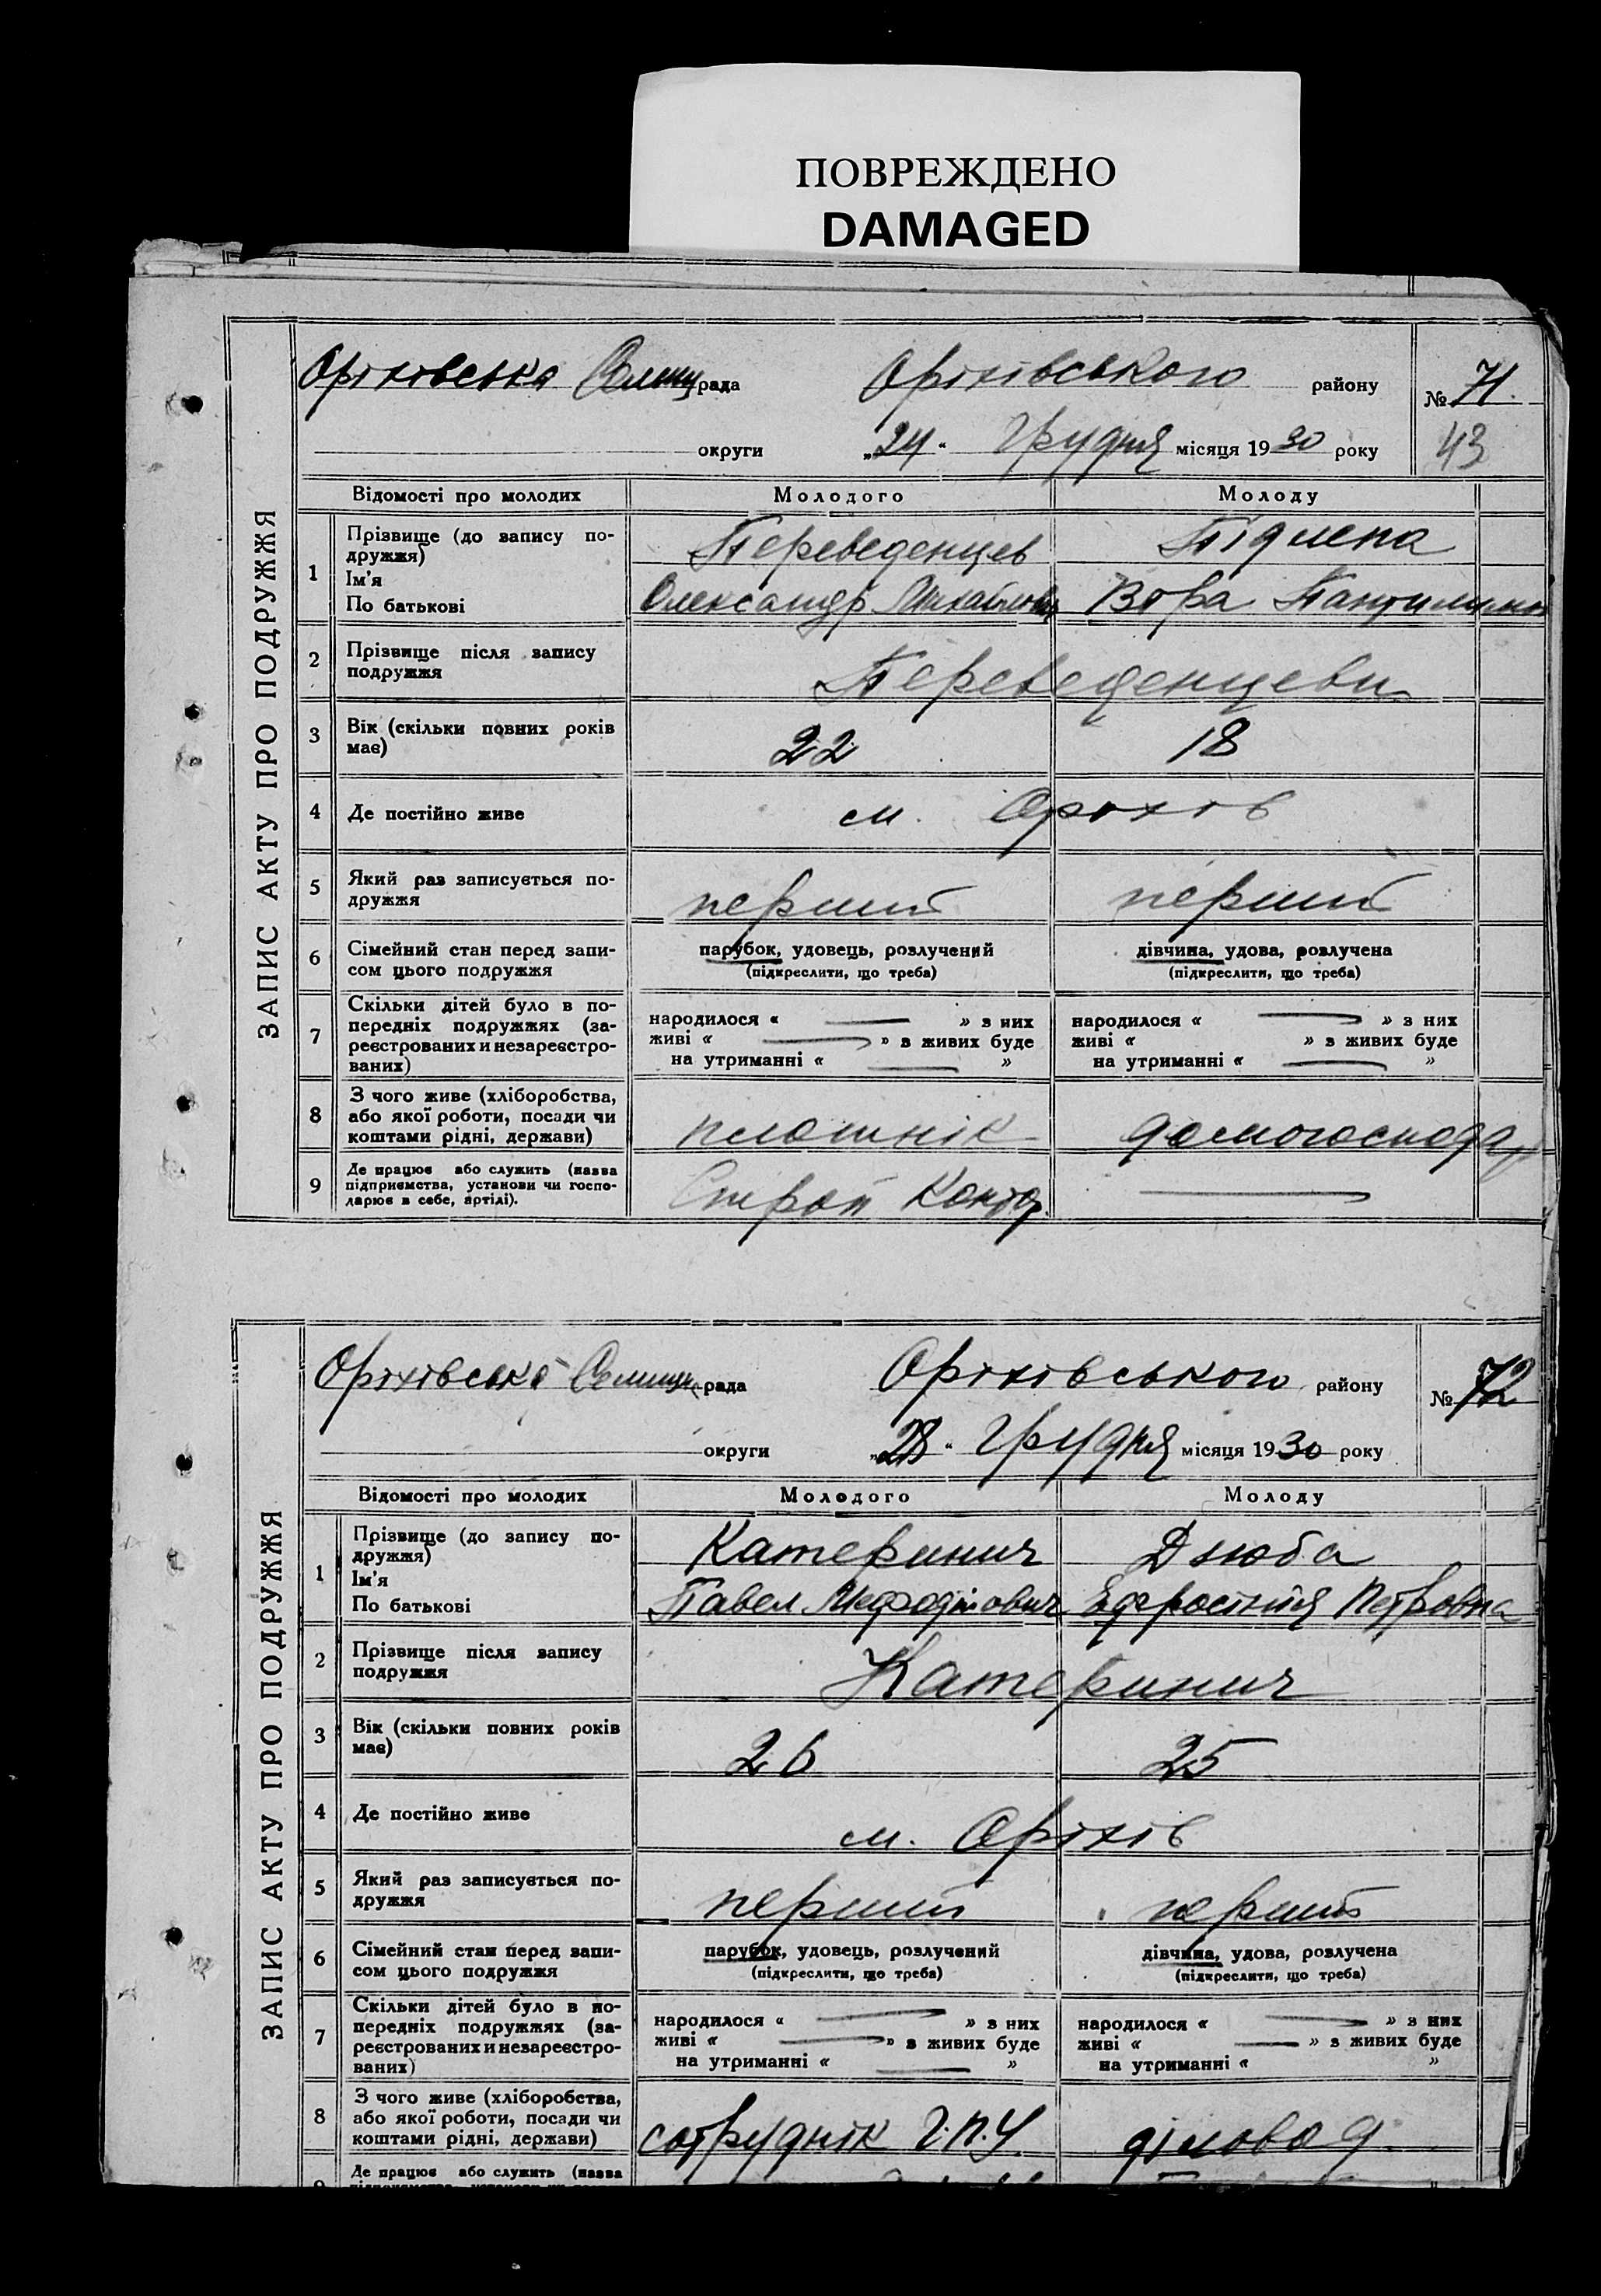 ПОВРЕЖДЕНО
DAMAGED
ЗАПИС АКТУ ПРО ПОДРУЖЖЯ
Оріхівська Селищ рада Оріхівського району № 71.
округи „24“ Грудня місяця 1930 року 43
Відомості про молодих Молодого Молоду
1 Прізвище (до запису по-
дружжя) Переведенцев
Ім'я
По батькові Олександр Михайлович Вера
2 Прізвище після запису
подружжя Переведенцеви
3 Вік (скільки повних років
має) 22 18
4 Де постійно живе м. Оріхів
5 Який раз записується по-
дружжя перший перший
6 Сімейний стан перед запи-
сом цього подружжя
парубок, удовець, розлучений дівчина, удова, розлучена
(підкреслити, що треба) (підкреслити, що треба)
7 Скільки дітей було в по-
передніх подружжях (за-
реєстрованих и незареєстро-
ваних)
народилося « » з них народилося « » з них
живі « » в живих буде живі « » в живих буде
на утриманні « » на утриманні « »
8 З чого живе (хліборобства,
або якої роботи, посади чи
коштами рідні, держави) плотнік домогосподар
9 Де працює або служить (назва
підприємства, установи чи госпо-
дарює в себе, артілі). Строй Контор.
ЗАПИС АКТУ ПРО ПОДРУЖЖЯ
Оріхівська Селищн рада Оріхівського району № 72
округи „28“ Грудня місяця 1930 року
Відомості про молодих Молодого Молоду
1 Прізвище (до запису по-
дружжя) Катеринич Дзюба
Ім'я
По батькові Павел Мефодійович Ефросинія Петровна
2 Прізвище після запису
подружжя Катеринич
3 Вік (скільки повних років
має) 26 25
4 Де постійно живе м. Оріхів
5 Який раз записується по-
дружжя перший перший
6 Сімейний стан перед запи-
сом цього подружжя
парубок, удовець, розлучений дівчина, удова, розлучена
(підкреслити, що треба) (підкреслити, що треба)
7 Скільки дітей було в по-
передніх подружжях (за-
реєстрованих и незареєстро-
ваних)
народилося « » з них народилося « » з них
живі « » в живих буде живі « » в живих буде
на утриманні « » на утриманні « »
8 З чого живе (хліборобства,
або якої роботи, посади чи
коштами рідні, держави) сотруднік Г.П.У. діловод.
Де працює або служить (назва